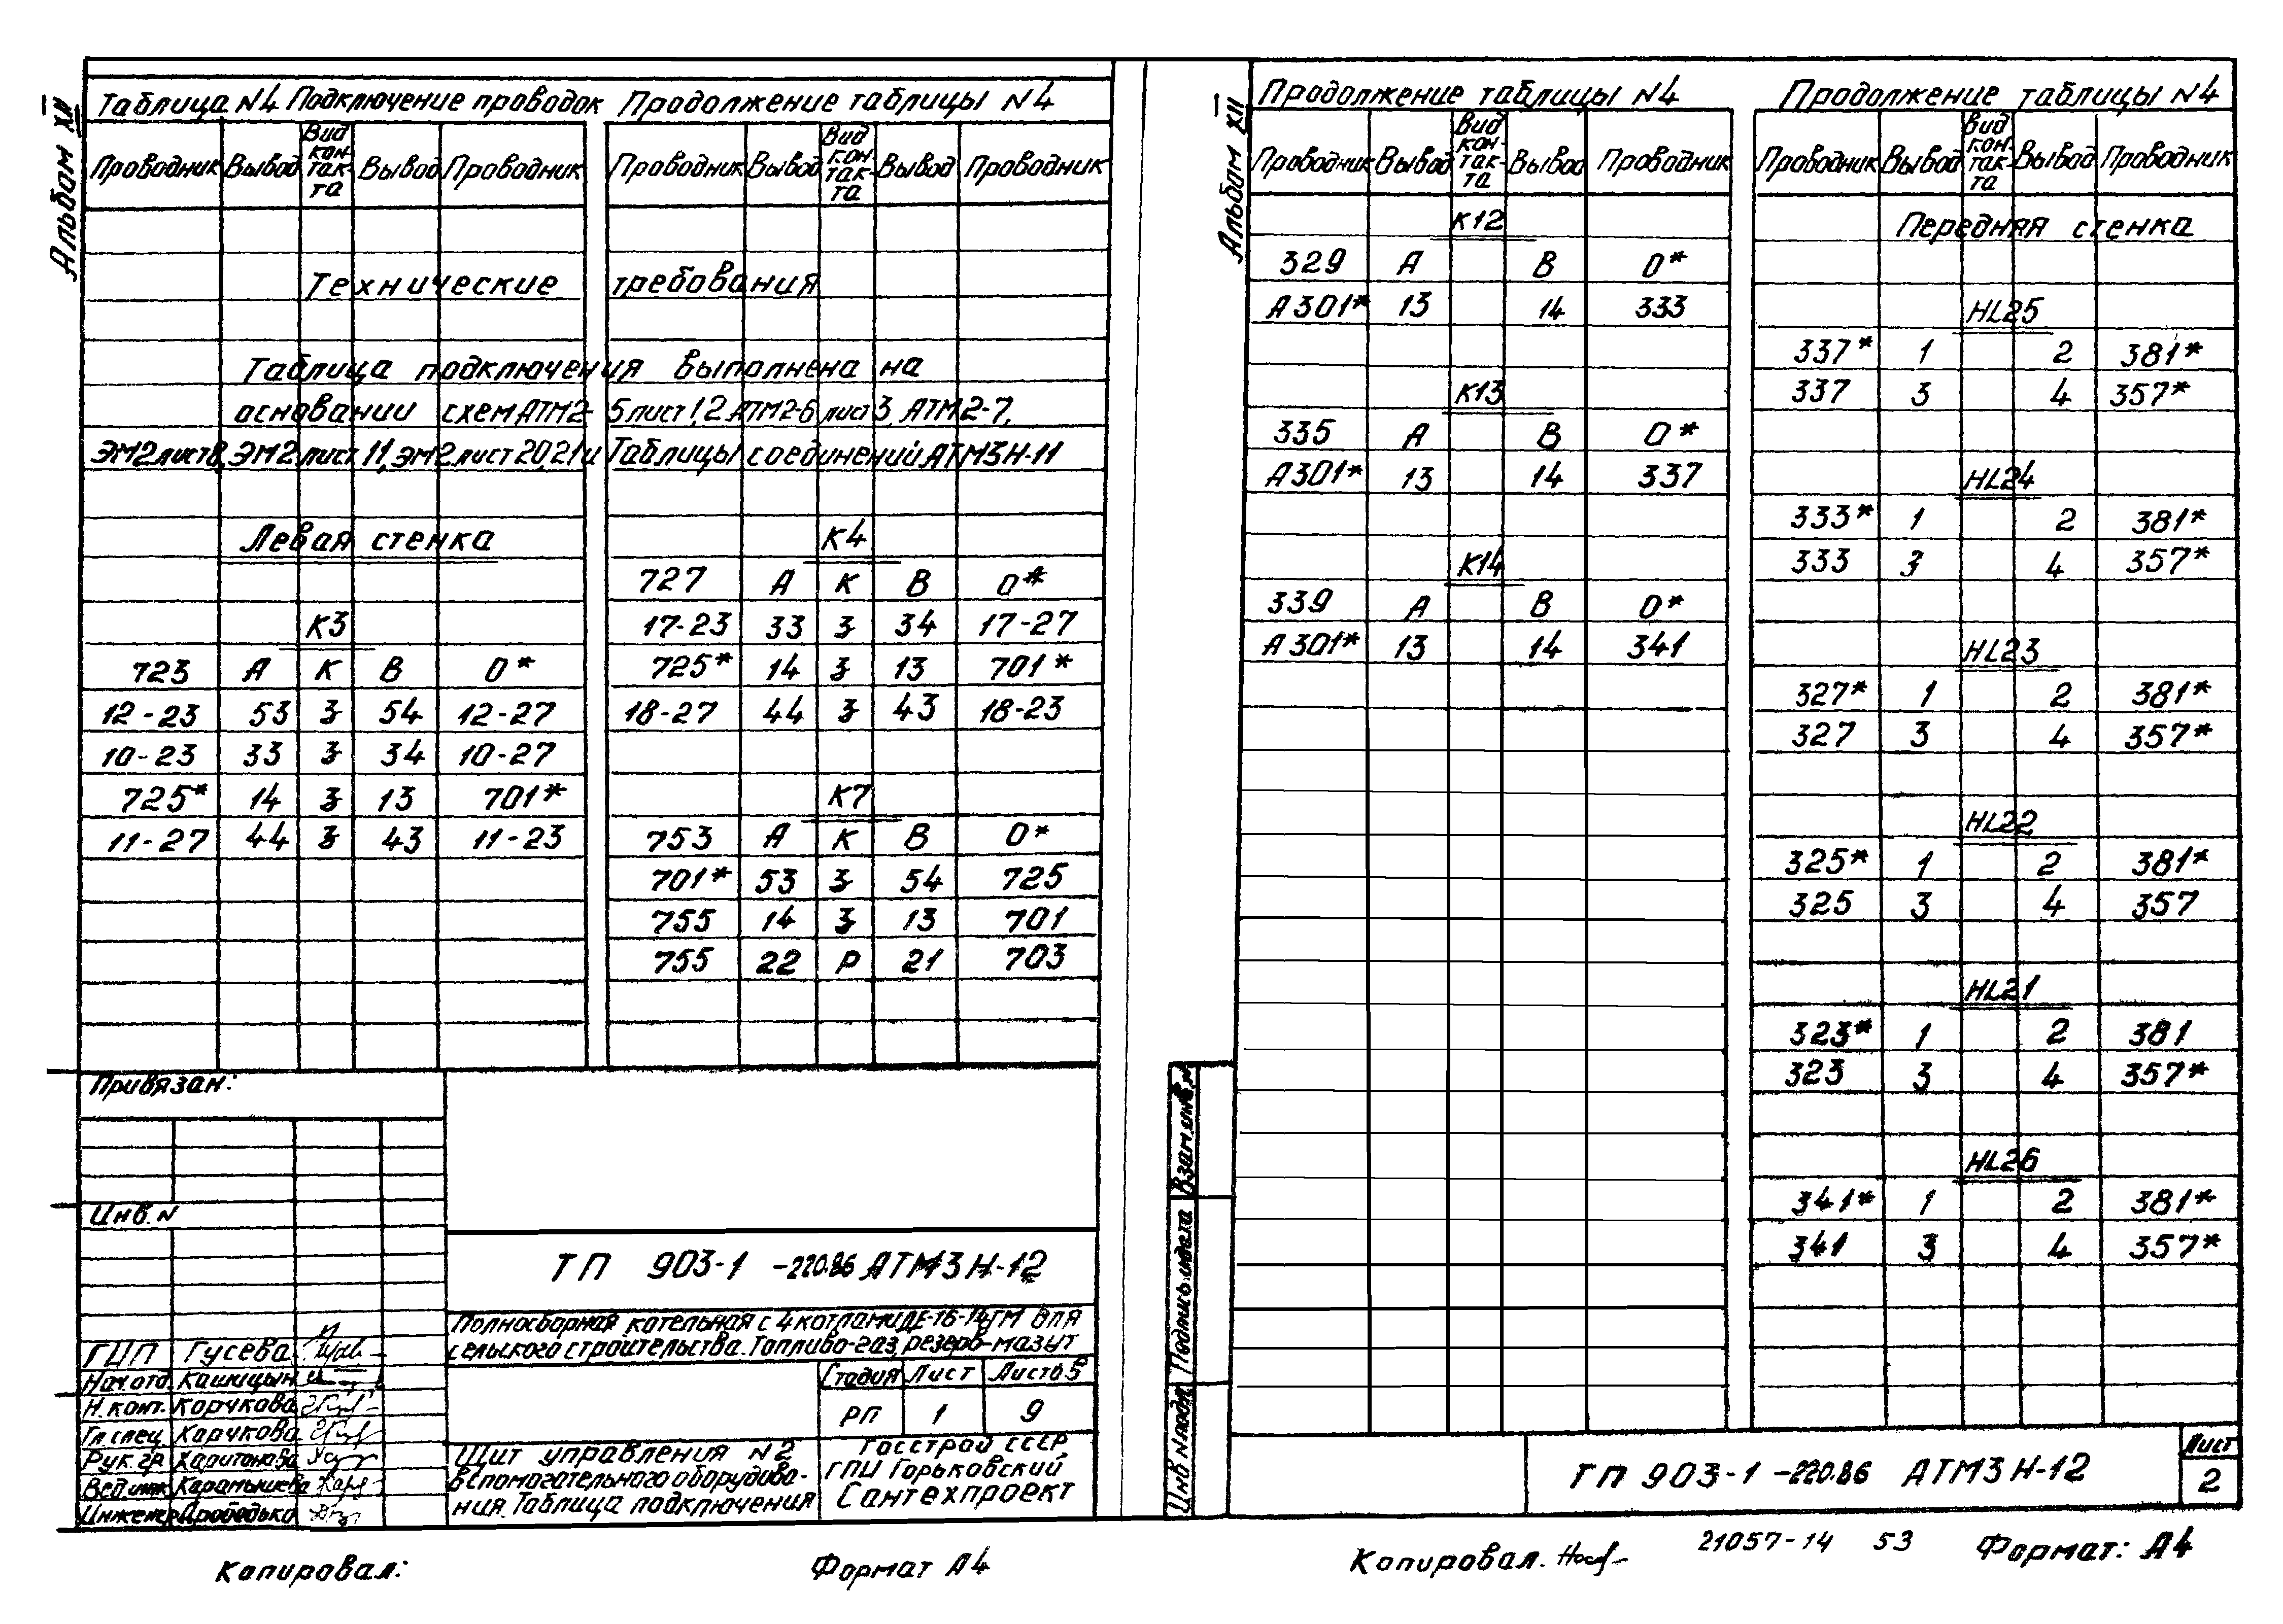 Альбом XII
Таблица N4 Подключение проводок
Проводник Вывод Вид контакта Вывод Проводник
Технические требования
Таблица подключения выполнена на
основании схем АТМ2-5 лист 1,2 АТМ2-6 лист 3, АТМ2-7,
ЭМ2 лист 8, ЭМ2 лист 11, ЭМ2 лист 20,21 и Таблицы соединений АТМ3Н-11
Левая стенка
К3
723 А К В О*
12-23 53 з 54 12-27
10-23 33 з 34 10-27
725* 14 з 13 701*
11-27 44 з 43 11-23
Продолжение таблицы N4
Проводник Вывод Вид контакта Вывод Проводник
К4
727 А К В О*
17-23 33 з 34 17-27
725* 14 з 13 701*
18-27 44 з 43 18-23
К7
753 А К В О*
701* 53 з 54 725
755 14 з 13 701
755 22 Р 21 703
Привязан:
Инв. N
ТП 903-1 -220.86 АТМ3Н-12
Полносборная котельная с 4 котлами ДЕ-16-14ГМ для
сельского строительства. Топливо-газ, резерв-мазут
Стадия Лист Листов
РП 1 9
ГИП Гусева
Нач.отд. Кашицын
Н. конт. Корчкова
Гл. спец. Корчкова
Рук. гр. Харитонова
Вед. инж. Карамышева
Инженер
Щит управления N2
вспомогательного оборудова-
ния. Таблица подключения
Госстрой СССР
ГПИ Горьковский
Сантехпроект
Копировал:
Формат А4
Альбом XII
Продолжение таблицы N4
Проводник Вывод Вид кон-так-та Вывод Проводник
К12
329 А В О*
А301* 13 14 333
К13
335 А В О*
А301* 13 14 337
К14
339 А В О*
А301* 13 14 341
Продолжение таблицы N4
Проводник Вывод Вид кон-так-та Вывод Проводник
Передняя стенка
HL25
337* 1 2 381*
337 3 4 357*
HL24
333* 1 2 381*
333 3 4 357*
HL23
327* 1 2 381*
327 3 4 357*
HL22
325* 1 2 381*
325 3 4 357
HL21
323* 1 2 381
323 3 4 357*
HL26
341* 1 2 381*
341 3 4 357*
Взам.инв.N
Подпись и дата
Инв N подл.
ТП 903-1 -220.86 АТМ3Н-12
Лист
2
Копировал.
21057-14 53
Формат: А4